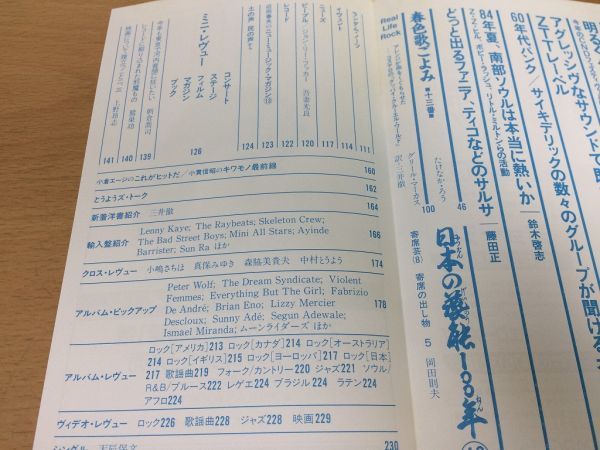 アグレッシヴなサウンドで
ZTTレーベル
60年代パンク／サイキデリックの数々のグループが聞ける
鈴木啓志
84年夏、南部ソウルは本当に熱いか
Z・Z・ヒル、ボビー・ラッシュ、リトル・ミルトンらの活動
藤田正
どっと出るファニア、ティコなどのサルサ
46
日本の藝能100年
寄席芸(8) 寄席の出し物 5 河田則夫
春色歌ごよみ
十三番
たけなか・ろう
100
Real Life Rock
グリール・マーカス
訳・三井徹
ランダム・ノーツ 111
イヴェント 114
ニューズ 116
ピープル 119
レコード 122
122
123
土の声 街の声から 124
ミニ・レヴュー
コンサート
ステージ
フィルム
マガジン
ブック
126
139
140
上野昂志 141
小倉エージのこれがヒットだ／小貫信昭のキワモノ最前線 160
とうようズ・トーク 162
新着洋書紹介 三井徹 164
輸入盤紹介 Lenny Kaye; The Raybeats; Skeleton Crew;
The Bad Street Boys; Mini All Stars; Ayinde
Barrister; Sun Ra ほか 166
クロス・レヴュー 小嶋さちほ 真保みゆき 森脇美貴夫 中村とうよう 174
アルバム・ピックアップ Peter Wolf; The Dream Syndicate; Violent
Femmes; Everything But The Girl; Fabrizio
De André; Brian Eno; Lizzy Mercier
Descloux; Sunny Adé; Segun Adewale;
Ismael Miranda; ムーンライダーズ ほか 178
アルバム・レヴュー ロック［アメリカ］213 ロック［カナダ］214 ロック［オーストラリア］
214 ロック［イギリス］215 ロック［ヨーロッパ］217 ロック［日本］
217 歌謡曲219 フォーク／カントリー220 ジャズ221 ソウル／
R&B／ブルース222 レゲエ224 ブラジル224 ラテン224
アフロ224
ヴィデオ・レヴュー ロック226 歌謡曲228 ジャズ228 映画229
シングル 天辰保文 230